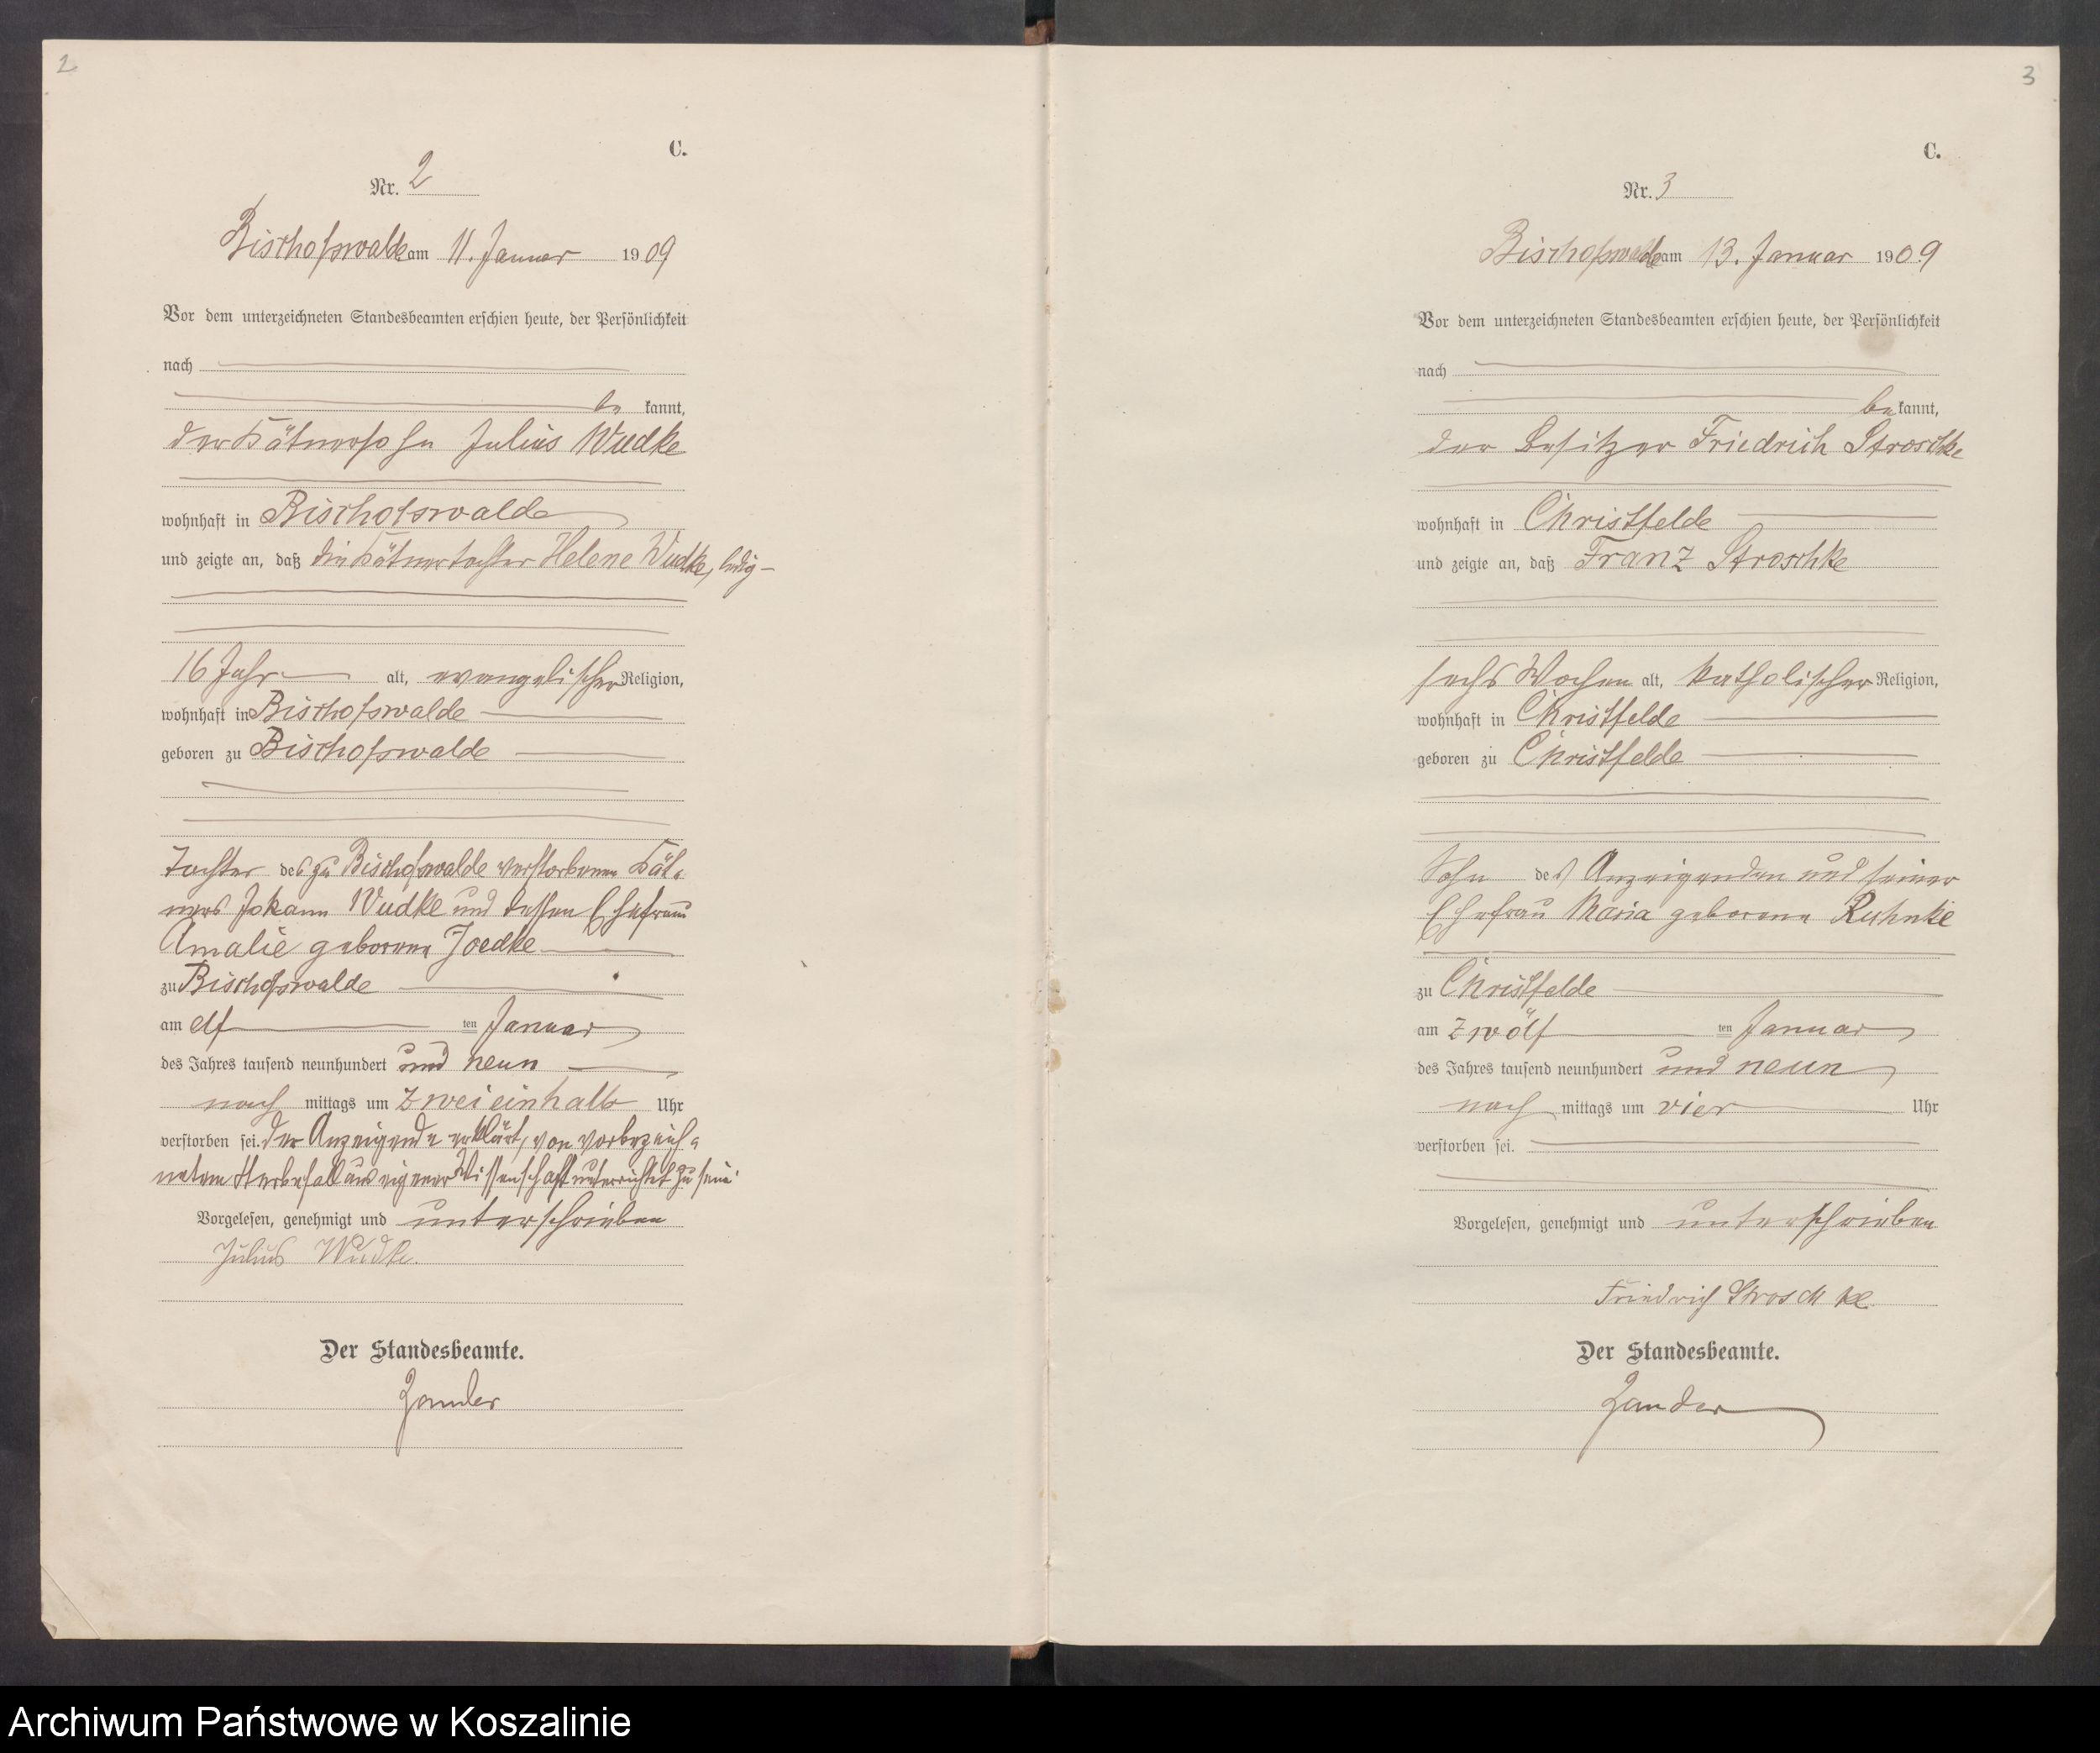 2
C.
Nr. 2
Bischofswalde am 11. Januar 1909
Vor dem unterzeichneten Standesbeamten erschien heute, der Persönlichkeit
nach
be kannt,
der Kätnersohn Julius Wudke
wohnhaft in Bischofswalde
und zeigte an, daß die Kätnertochter Helene Wudke, ledig
16 Jahr alt, evangelischer Religion,
wohnhaft in Bischofswalde
geboren zu Bischofswalde
Tochter des zu Bischofswalde verstorbenen Kät-
ners Johann Wudke und dessen Ehefrau
Amalie geborene Joedke
zu Bischofswalde
am elf ten Januar
des Jahres tausend neunhundert und neun
nach mittags um zweieinhalb Uhr
verstorben sei. Der Anzeigende erklärt, von vorbezeich-
netem Sterbefall aus eigener Wissenschaft unterrichtet zu sein.
Vorgelesen, genehmigt und unterschrieben
Julius Wudke.
Der Standesbeamte.
Zander
3
C.
Nr. 3
Bischofswalde am 13. Januar 1909
Vor dem unterzeichneten Standesbeamten erschien heute, der Persönlichkeit
nach
be kannt,
der Besitzer Friedrich Stroschke
wohnhaft in Christfelde
und zeigte an, daß Franz Stroschke
sechs Wochen alt, katholischer Religion,
wohnhaft in Christfelde
geboren zu Christfelde
Sohn des Anzeigenden und seiner
Ehefrau Maria geborene Ruhnke
zu Christfelde
am zwölf ten Januar
des Jahres tausend neunhundert und neun
nach mittags um vier Uhr
verstorben sei.
Vorgelesen, genehmigt und unterschrieben
Friedrich Stroschke
Der Standesbeamte.
Zander
Archiwum Państwowe w Koszalinie